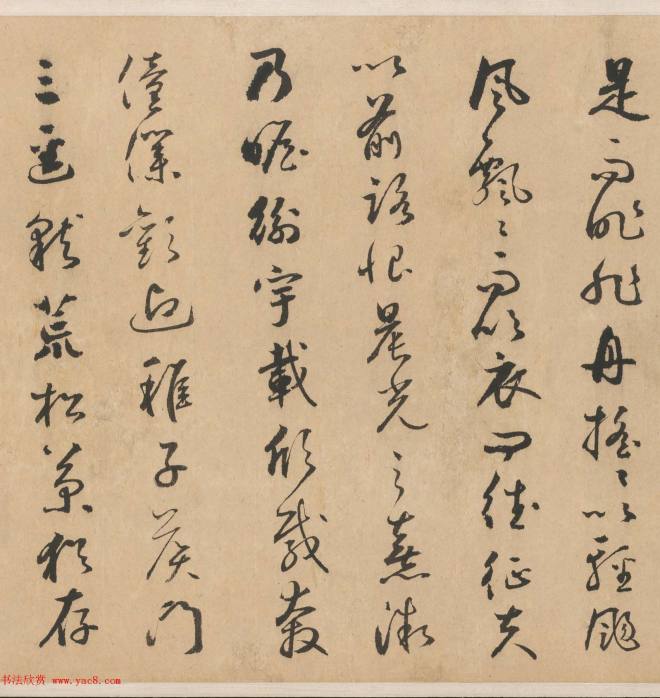 是而昨非舟搖〻以輕颺
風飄〻而吹衣問征夫
以前路恨晨光之熹微
乃瞻衡宇載欣載奔
僮僕歡迎稚子候門
三逕就荒松菊猶存
书法欣赏 www.yac8.com